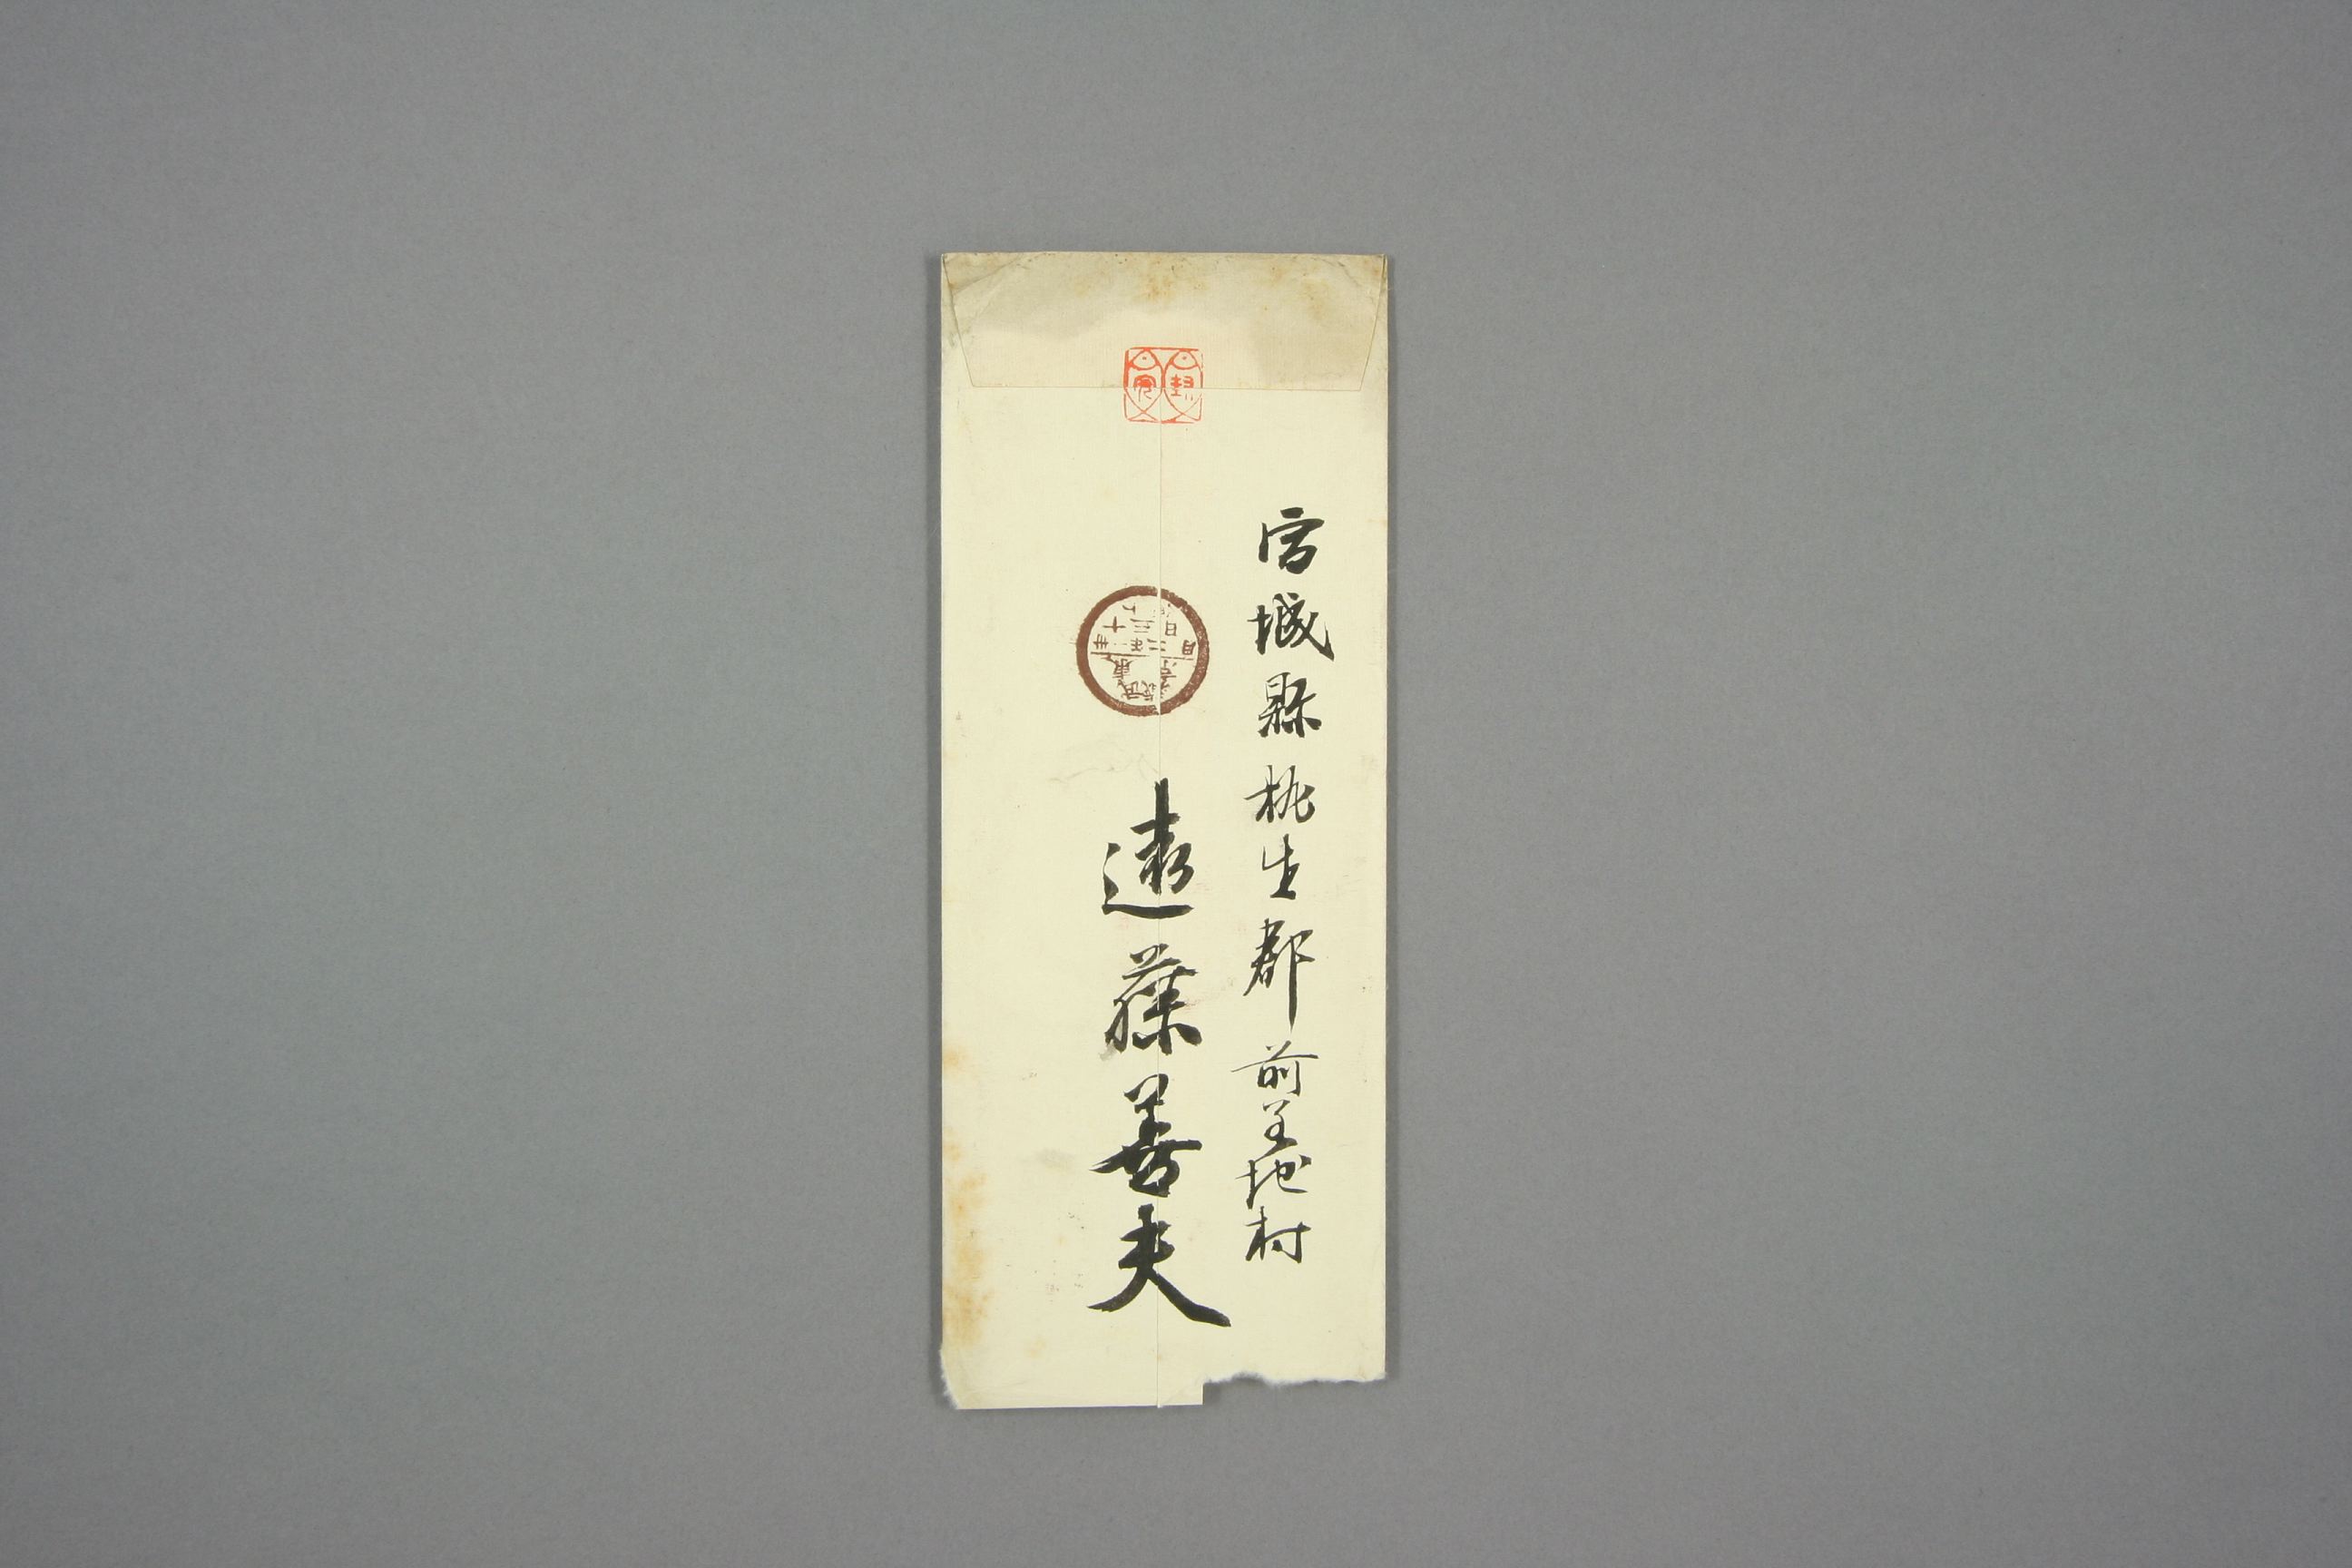 宮城縣桃生郡前谷地村
遠藤善夫